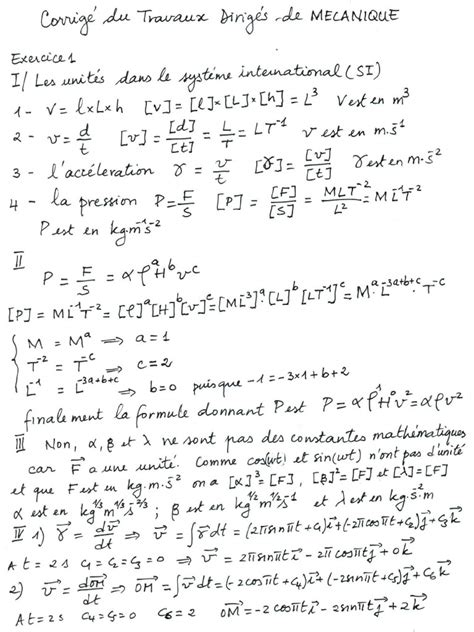 Corrigé du Travaux Dirigés de MECANIQUE
Exercice 1
I/ Les unités dans le système international (SI)
1 - V = l x L x h [V] = [l] x [L] x [h] = L³ V est en m³
2 - v = d/t [v] = [d]/[t] = L/T = LT⁻¹ v est en m.s⁻¹
3 - l'accéleration γ = v/t [γ] = [v]/[t] γ est en m.s⁻²
4 - la pression P = F/S [P] = [F]/[S] = MLT⁻²/L² = ML⁻¹T⁻²
P est en kg.m⁻¹s⁻²
II
P = F/S = α ρᵃ H ᵇ vᶜ
[P] = ML⁻¹T⁻² = [ρ]ᵃ[H]ᵇ[v]ᶜ = [ML⁻³]ᵃ[L]ᵇ[LT⁻¹]ᶜ = Mᵃ.L⁻³ᵃ⁺ᵇ⁺ᶜ.T⁻ᶜ
M = Mᵃ ⟹ a = 1
T⁻² = T⁻ᶜ ⟹ c = 2
L⁻¹ = L⁻³ᵃ⁺ᵇ⁺ᶜ ⟹ b = 0 puisque -1 = -3x1 + b + 2
finalement la formule donnant P est P = α ρ¹ H⁰ v² = α ρ v²
III Non, α, β et λ ne sont pas des constantes mathématiques
car F⃗ a une unité. Comme cos(wt) et sin(wt) n'ont pas d'unité
et que F est en kg.m.s⁻² on a [α]³ = [F], [β]² = [F] et [λ] = [F]
α est en kg^1/3 m^1/3 s^-2/3 ; β est en kg^1/2 m^1/2 s⁻¹ et λ est en kg.s⁻².m
IV 1) γ⃗ = dv⃗/dt ⟹ v⃗ = ∫γ⃗ dt = (2π sin πt + C₁)i⃗ + (-2π cos πt + C₂)j⃗ + C₃k⃗
A t = 2s C₁ = C₂ = C₃ = 0 v⃗ = 2π sin πt i⃗ - 2π cos πt j⃗ + 0k⃗
2) v⃗ = dOM⃗/dt ⟹ OM⃗ = ∫v⃗ dt = (-2 cos πt + C₄)i⃗ + (-2 sin πt + C₅)j⃗ + C₆k⃗
A t = 2s C₄ = C₅ = 0 C₆ = 2 OM⃗ = -2 cos πt i⃗ - 2 sin πt j⃗ + 2k⃗